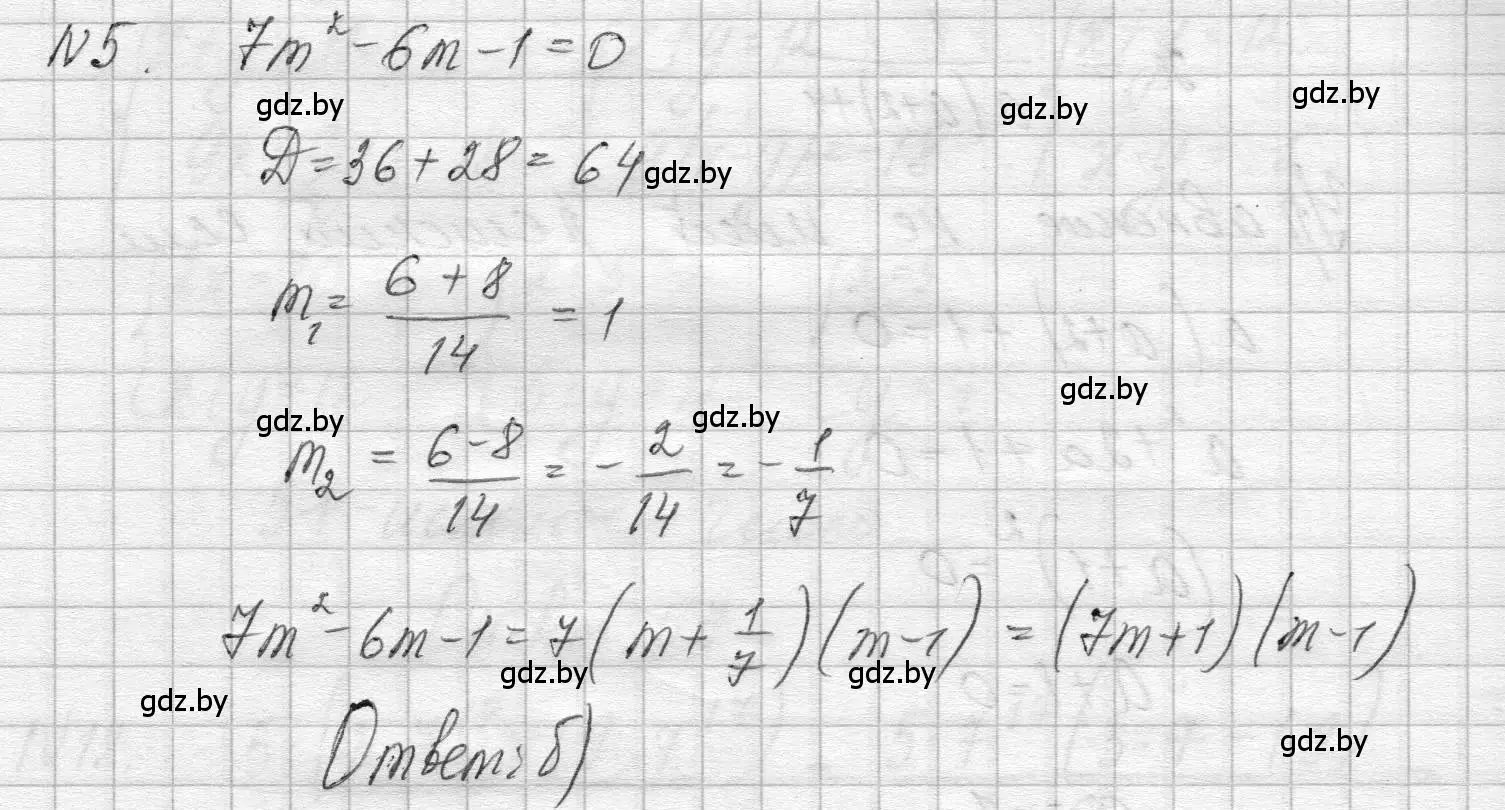 N5. 7m² - 6m - 1 = 0
gdz.by gdz.by gdz.by
Д = 36 + 28 = 64 gdz.by
m₁ = (6 + 8)/14 = 1
gdz.by gdz.by gdz.by
m₂ = (6 - 8)/14 = - 2/14 = - 1/7
7m² - 6m - 1 = 7(m + 1/7)(m - 1) = (7m + 1)(m - 1)
gdz.by gdz.by gdz.by
Ответ: б) gdz.by